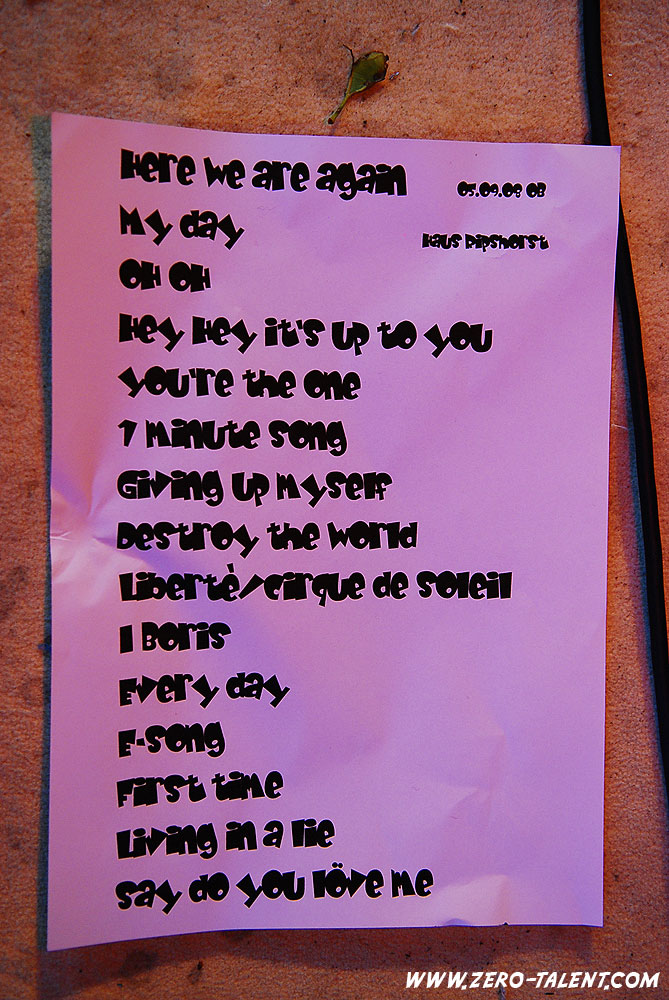 Here we are again
05.09.08 OB
My day
Haus Ripshorst
OH OH
Hey Hey it's up to you
you're the one
1 Minute song
Giving up myself
Destroy the world
Libertè/cirque de soleil
I Boris
Every day
E-song
First time
Living in a lie
say do you löve me
WWW.ZERO-TALENT.COM